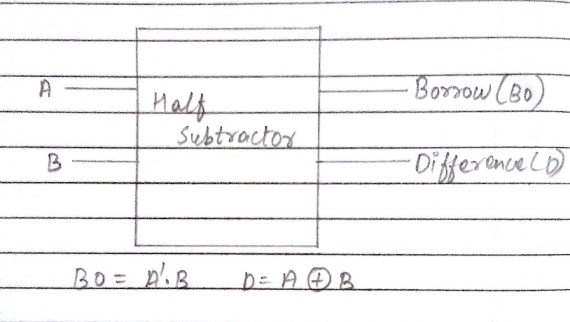 A
Half
Subtractor
Borrow (B0)
B
Difference (D)
B0 = A'.B D = A ⊕ B